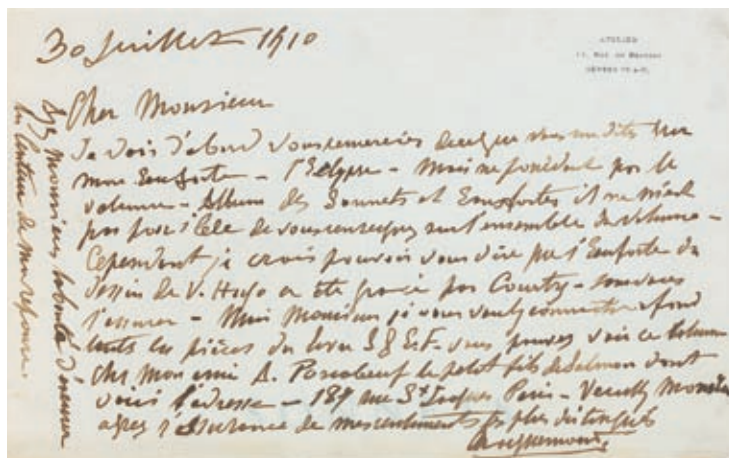 30 Juillet 1910
ATELIER
Cher Monsieur
Je dois d'abord vous remercier de ce que vous me dites sur
mon Eauforte - l'Eclipse - Mais ne possédant pas le
volume - Album des Sonnets et Eauxfortes il ne m'est
pas possible de vous renseigner sur l'ensemble du volume -
Cependant je crois pouvoir vous dire que l'Eauforte du
dessin de V. Hugo a été gravé par Courtry - sans vous
l'assurer - Mais Monsieur si vous voulez connaitre à fond
toutes les pièces du livre S & E.F. vous pouvez voir ce volume
chez mon ami A. Porcabeuf le petit fils de Salmon dont
voici l'adresse - 187 rue St Jacques Paris - Veuillez Monsieur
agréer l'assurance de mes sentiments les plus distingués
Ayez Monsieur la bonté d'excuser
la lenteur de ma réponse.